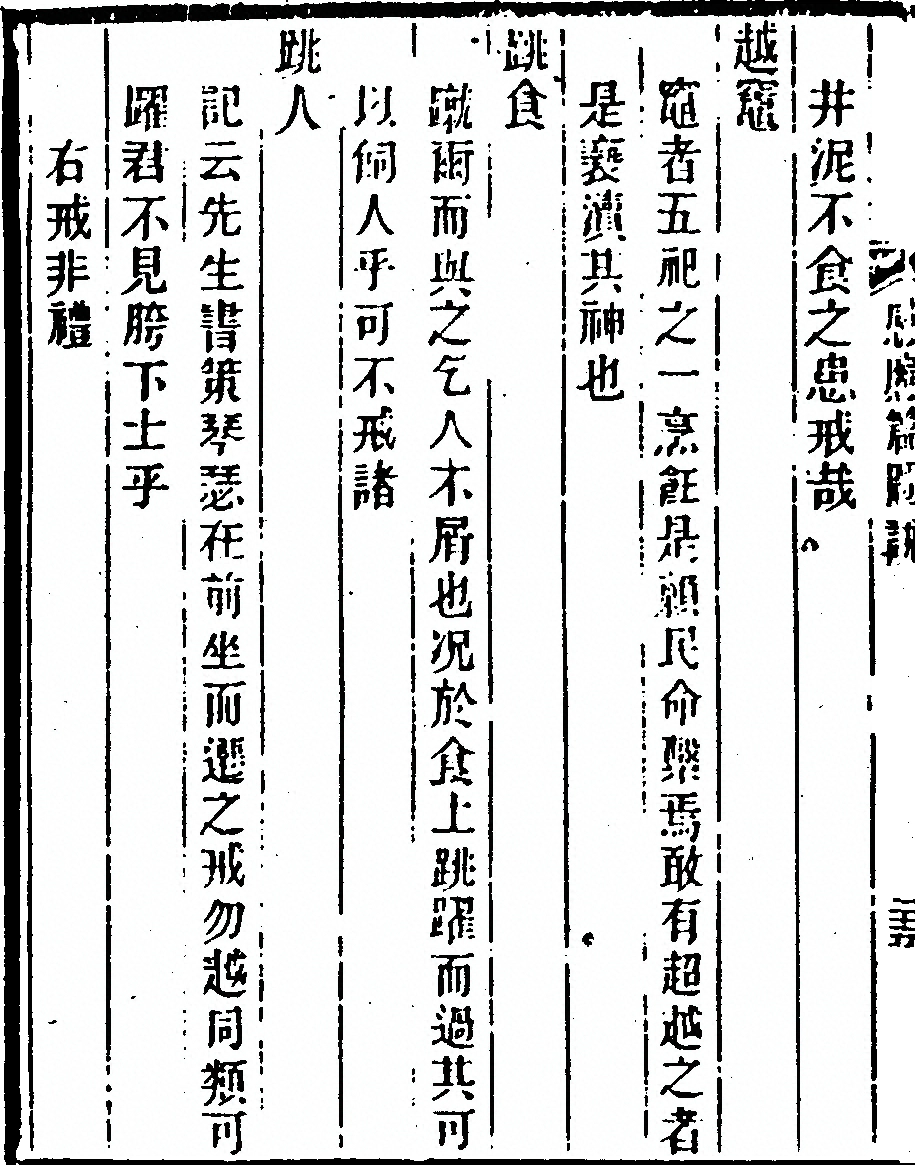 感應篇註訓
井泥不食之患戒哉
越竈
竈者五祀之一烹飪是賴民命繫焉敢有超越之者
是褻瀆其神也
跳食
蹴爾而與之乞人不屑也况於食上跳躍而過其可
以飼人乎可不戒諸
跳人
記云先生書策琴瑟在前坐而遷之戒勿越同類可
躍君不見胯下士乎
右戒非禮